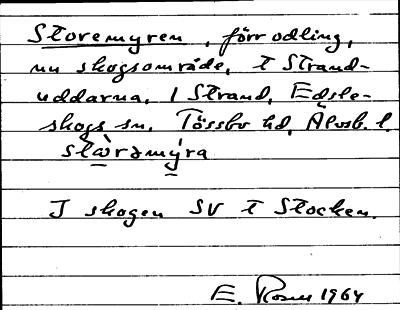 Storemyren, förr odling,
nu skogsområde, t Strand-
uddarna, i Strand, Edsle-
skogs sn. Tössbo hd, Älvsb. l.
stὼrəmýra
I skogen SV t Stocken.
E. Rosen 1964